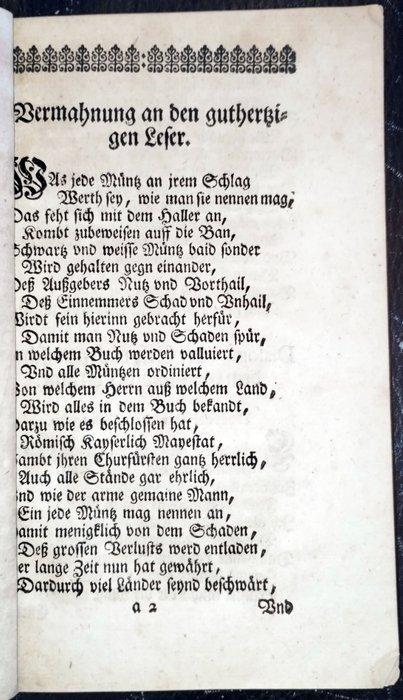 Vermahnung an den guthertzi-
gen Leser.
WAs jede Müntz an jrem Schlag
Werth sey, wie man sie nennen mag,
Das feht sich mit dem Haller an,
Kombt zubeweisen auff die Ban,
Schwartz vnd weisse Müntz baid sonder
Wird gehalten gegn einander,
Deß Außgebers Nutz vnd Vorthail,
Deß Einnemmers Schad vnd Vnhail,
Wirdt fein hierinn gebracht herfür,
Damit man Nutz vnd Schaden spür,
In welchem Buch werden valluiert,
Vnd alle Müntzen ordiniert,
Von welchem Herrn auß welchem Land,
Wird alles in dem Buch bekandt,
Darzu wie es beschlossen hat,
Römisch Kayserlich Mayestat,
Sambt jhren Churfürsten gantz herrlich,
Auch alle Stände gar ehrlich,
Vnd wie der arme gemaine Mann,
Ein jede Müntz mag nennen an,
Damit menigklich von dem Schaden,
Deß grossen Verlusts werd entladen,
Der lange Zeit nun hat gewährt,
Dardurch viel Länder seynd beschwärt,
a 2 Vnd